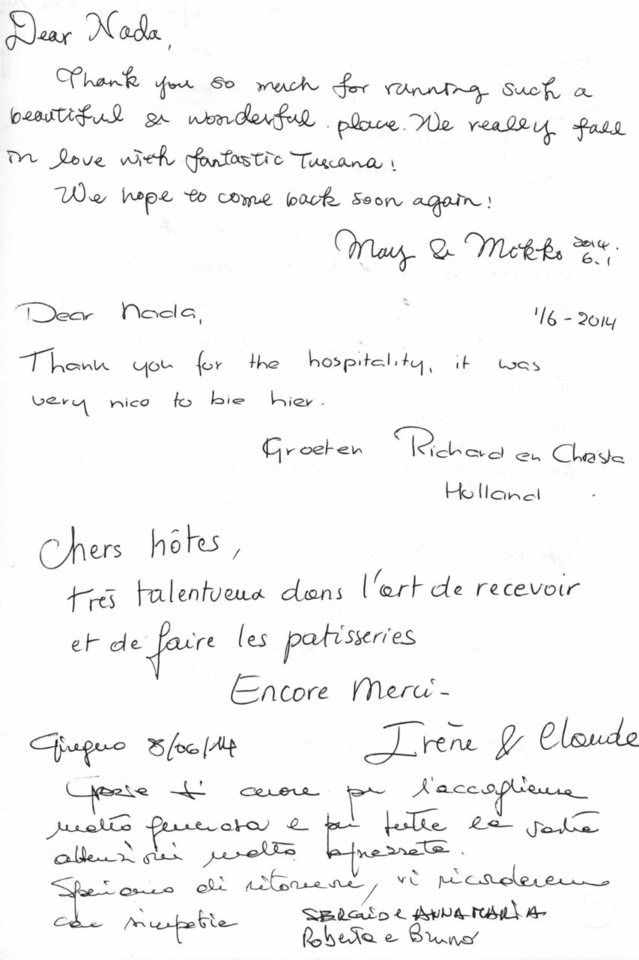 Dear Nada,
Thank you so much for running such a
beautiful & wonderful place. We really fall
in love with fantastic Tuscana!
We hope to come back soon again!
May & Mokko 2014.
6.1
Dear Nada, 1/6-2014
Thank you for the hospitality, it was
very nico to bie hier.
Groeten Richard en Christa
Holland
Chers hôtes,
très talentueux dans l'art de recevoir
et de faire les patisseries
Encore Merci-
Irène & Claude
Giugno 8/06/14
Grazie di cuore per l'accoglienza
molto generosa e per tutte le
attenzioni molto apprezzate.
Speriamo di ritornare, vi ricorderemo
con simpatia
SERGIO e ANNAMARIA
Roberta e Bruno